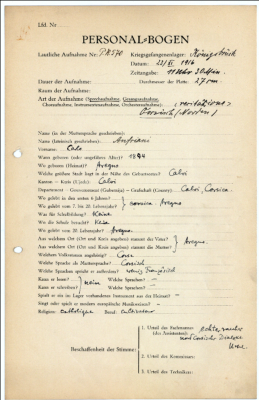 Lfd. Nr.
PERSONAL-BOGEN
Lautliche Aufnahme Nr: PK 570 Kriegsgefangenenlager: Königsbrück
Datum: 23/II 1916
Zeitangabe: 11 Uhr
Dauer der Aufnahme: Durchmesser der Platte: 27 cm
Raum der Aufnahme:
Art der Aufnahme (Sprechaufnahme, Gesangsaufnahme,
Choraufnahme, Instrumentenaufnahme, Orchesteraufnahme):
Name (in der Muttersprache geschrieben):
Name (lateinisch geschrieben):
Vorname:
Wann geboren (oder ungefähres Alter)? 1894
Wo geboren (Heimat)? Aregno
Welche größere Stadt liegt in der Nähe des Geburtsortes? Calvi
Kanton — Kreis (Ujedz): Calvi
Department — Gouvernement (Gubernija) — Grafschaft (County): Calvi, Corsica
Wo gelebt in den ersten 6 Jahren?
Wo gelebt vom 7. bis 20. Lebensjahr? Corsica Aregno
Was für Schulbildung? Keine
Wo die Schule besucht? Keine
Wo gelebt vom 20. Lebensjahr? Aregno
Aus welchem Ort (Ort und Kreis angeben) stammt der Vater?
Aus welchem Ort (Ort und Kreis angeben) stammt die Mutter? Aregno
Welchem Volksstamm angehörig? Corse
Welche Sprache als Muttersprache? Corsisch
Welche Sprachen spricht er außerdem? wenig Französisch
Kann er lesen? Welche Sprachen?
Kann er schreiben? Nein Welche Sprachen?
Spielt er ein im Lager vorhandenes Instrument aus der Heimat?
Singt oder spielt er modern europäische Musikweisen?
Religion: catholique Beruf: cultivateur
Beschaffenheit der Stimme:
1. Urteil des Fachmannes
(des Assistenten):
2. Urteil des Kommissars:
3. Urteil des Technikers: